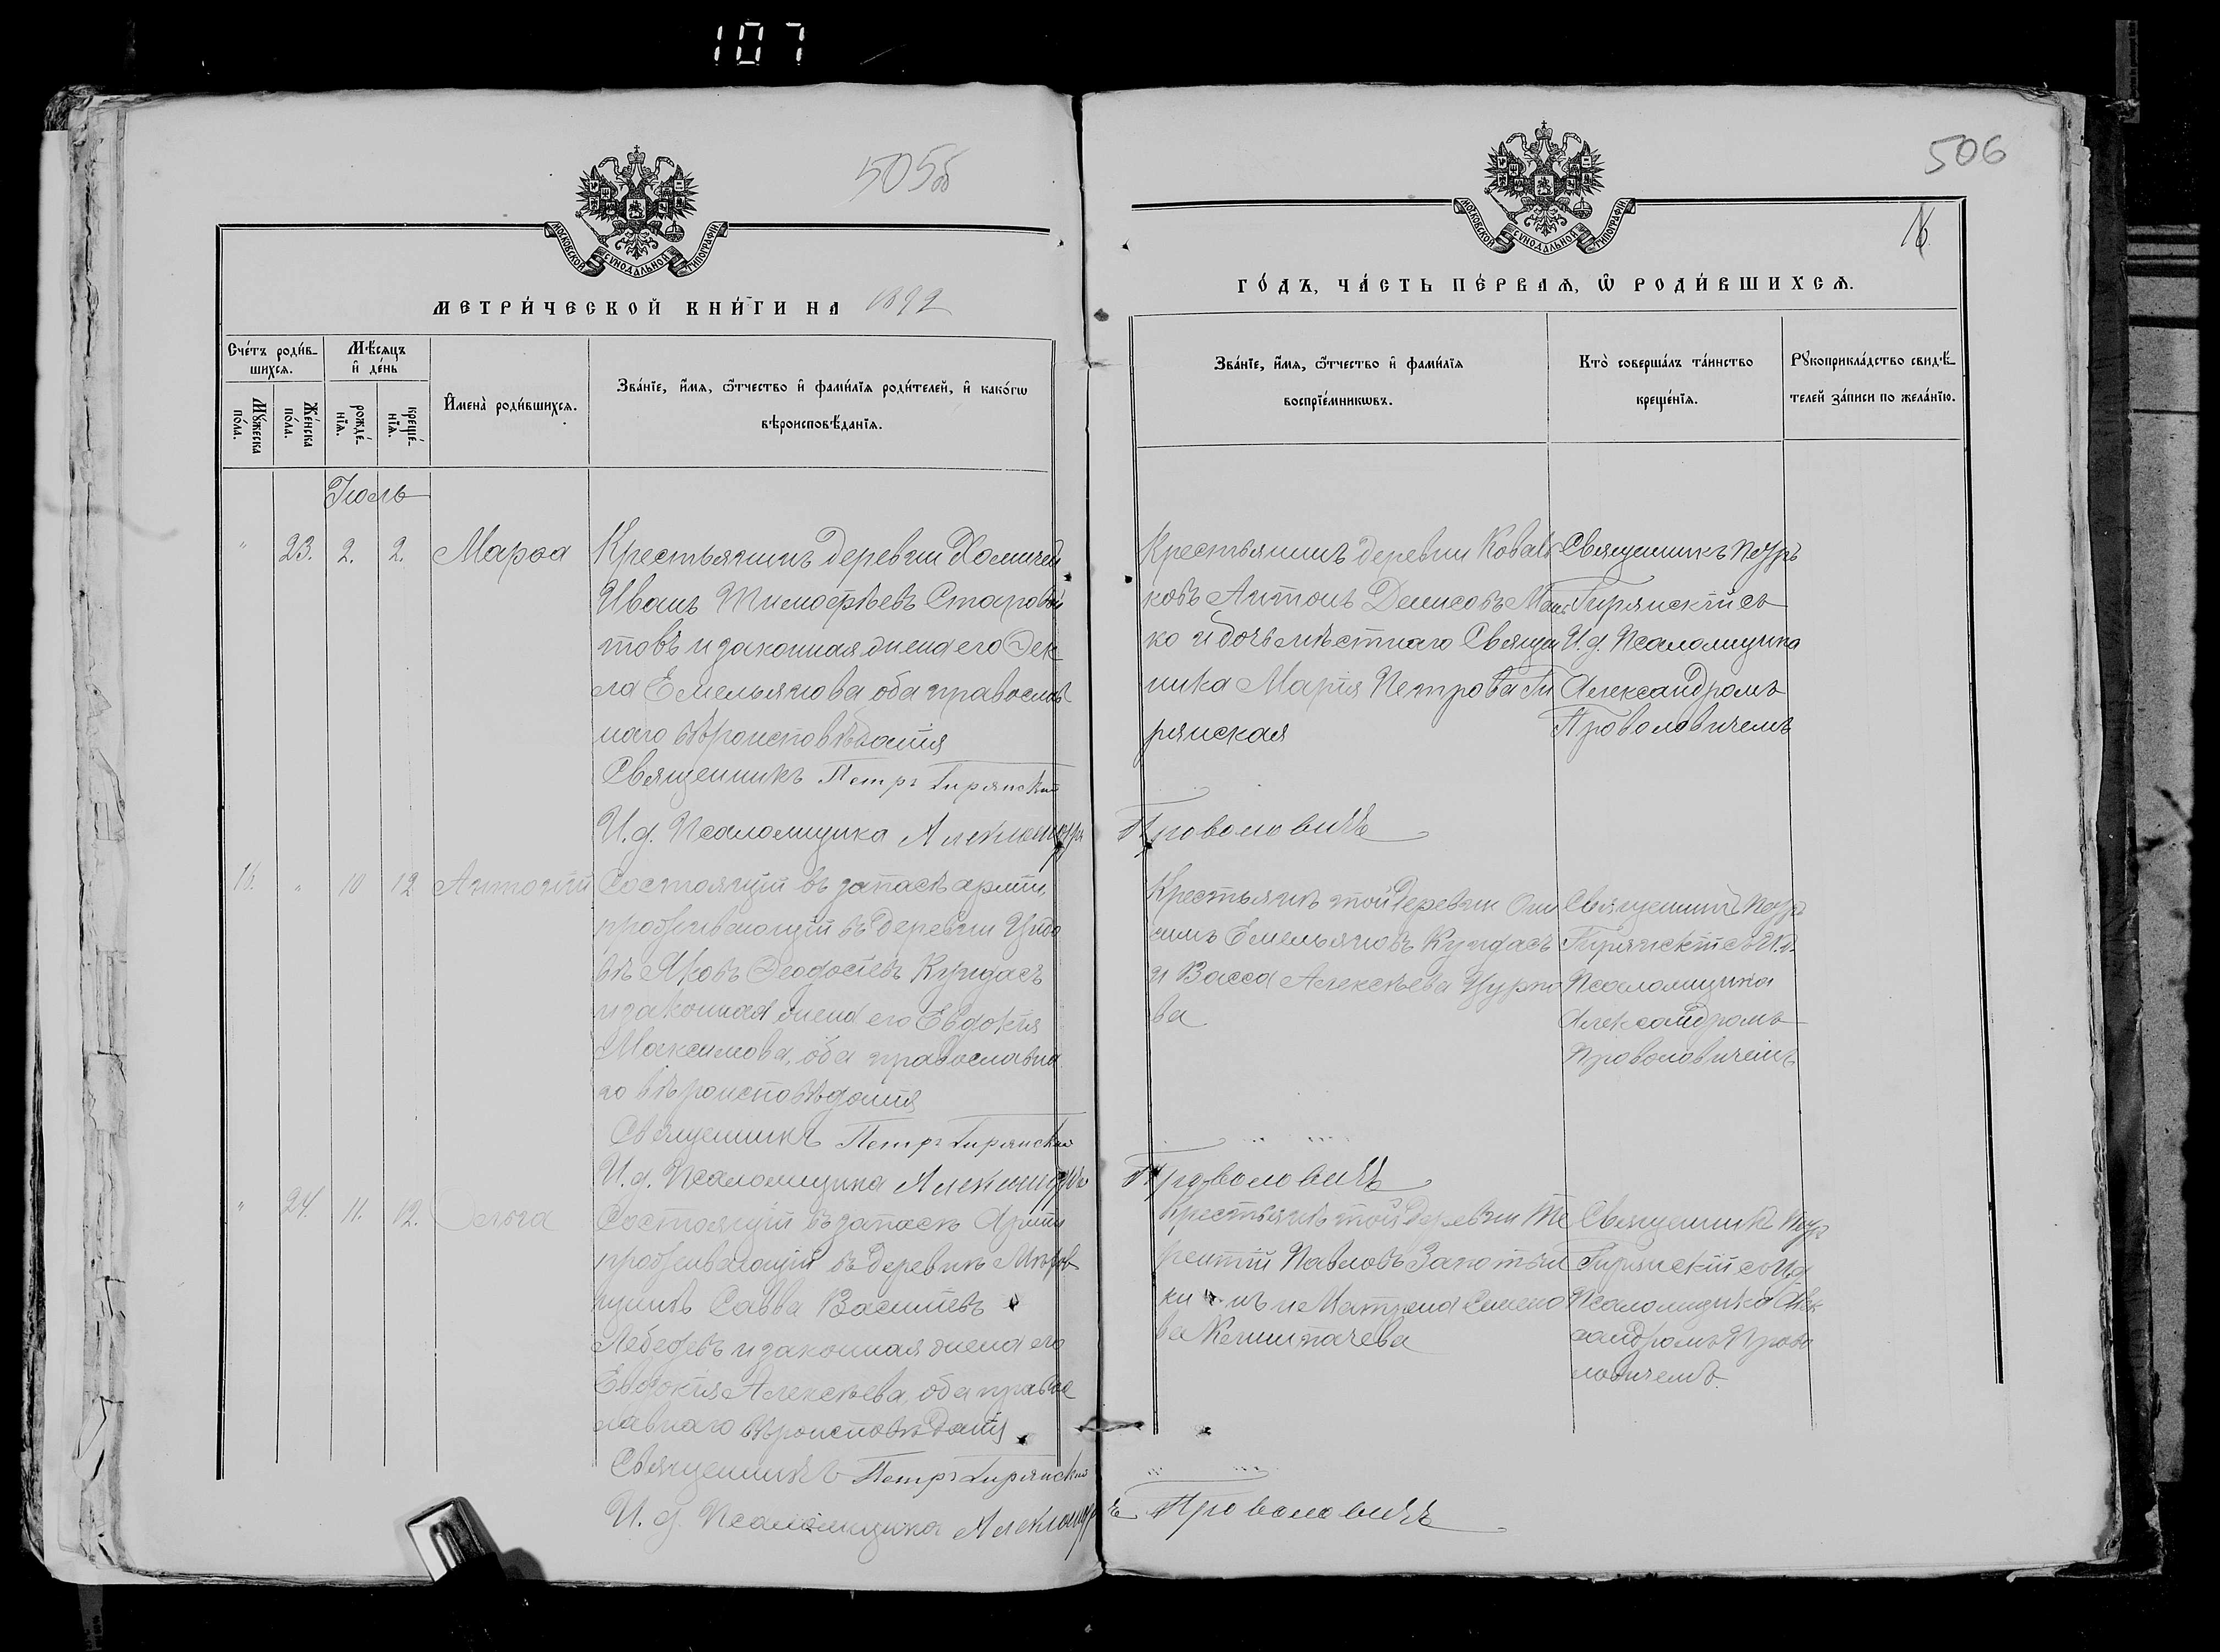 107
505об
МОСКОВСКОЙ СѴНОДАЛЬНОЙ ТИПОГРАФІИ
МЕТРИ́ЧЕСКОЙ КНИ́ГИ НА 1892
Сче́тъ роди́в-
шихсѧ.
Мѣ́сѧцъ
и҆ де́нь
Мꙋ́жеска
по́ла.
Же́нска
по́ла.
рожде́-
нїѧ.
креще́-
нїѧ.
И҆мена̀ роди́вшихсѧ.
Зва́нїе, и҆́мѧ, ѻ҆́тчество и҆ фами́лїѧ роди́телей, и҆ како́гѡ
вѣроисповѣ́данїѧ.
Іюль
" 23. 2. 2. Марѳа
Крестьянинъ деревни Хомичей
Иванъ Тимофѣевъ Старовой
товъ и законная жена его Ѳек
ла Емельянова, оба православ
наго вѣроисповѣданія
Священникъ Петръ Гирянскій
И. д. Псаломщика Александръ
16. " 10 12 Антоній
Состоящій въ запасѣ арміи,
проживающій въ деревни
Яковъ Ѳеодосіевъ Кундасъ
и законная жена его Евдокія
Максимова, оба православна
го вѣроисповѣданія
Священникъ Петръ Гирянскій
И. д. Псаломщика Александръ
" 24. 11. 12. Ольга
Состоящій въ запасѣ Арміи
проживающій въ деревнѣ
Савва Васильевъ
Лебедевъ и законная жена его
Евдокія Алексѣева, оба правос
лавнаго вѣроисповѣданія.
Священникъ Петръ Гирянскій
И. д. Псаломщика Александръ
506
16
МОСКОВСКОЙ СѴНОДАЛЬНОЙ ТИПОГРАФІИ
ГО́ДЪ, ЧА́СТЬ ПЕ́РВАѦ, Ѽ РОДИ́ВШИХСѦ.
Зва́нїе, и҆́мѧ, ѻ҆́тчество и҆ фами́лїѧ
воспрїе́мникѡвъ.
Кто̀ соверша́лъ та́инство
креще́нїѧ.
Рꙋкоприкла́дство свидѣ́-
телей за́писи по жела́нїю.
Крестьянинъ деревни Коваль
ковъ Антонъ Денисовъ
ко и дочь мѣстнаго Священ
ника Марія Петрова Ги
рянская
Священникъ Петръ
Гирянскій съ
И. д. Псаломщика
Александромъ
Проволовичемъ
Проволовичъ
Крестьяне той деревни Они
симъ Емельяновъ Кундасъ
и Васса Алексѣева Цурко
ва
Священникъ Петръ
Гирянскій съ И. д.
Псаломщика
Александромъ
Проволовичемъ
Проволовичъ
Крестьяне той деревни Те
рентій Павловъ
и Матрена Семено
ва
Священникъ Петръ
Гирянскій съ И. д.
Псаломщика Алек
сандромъ Прово
ловичемъ.
Проволовичъ